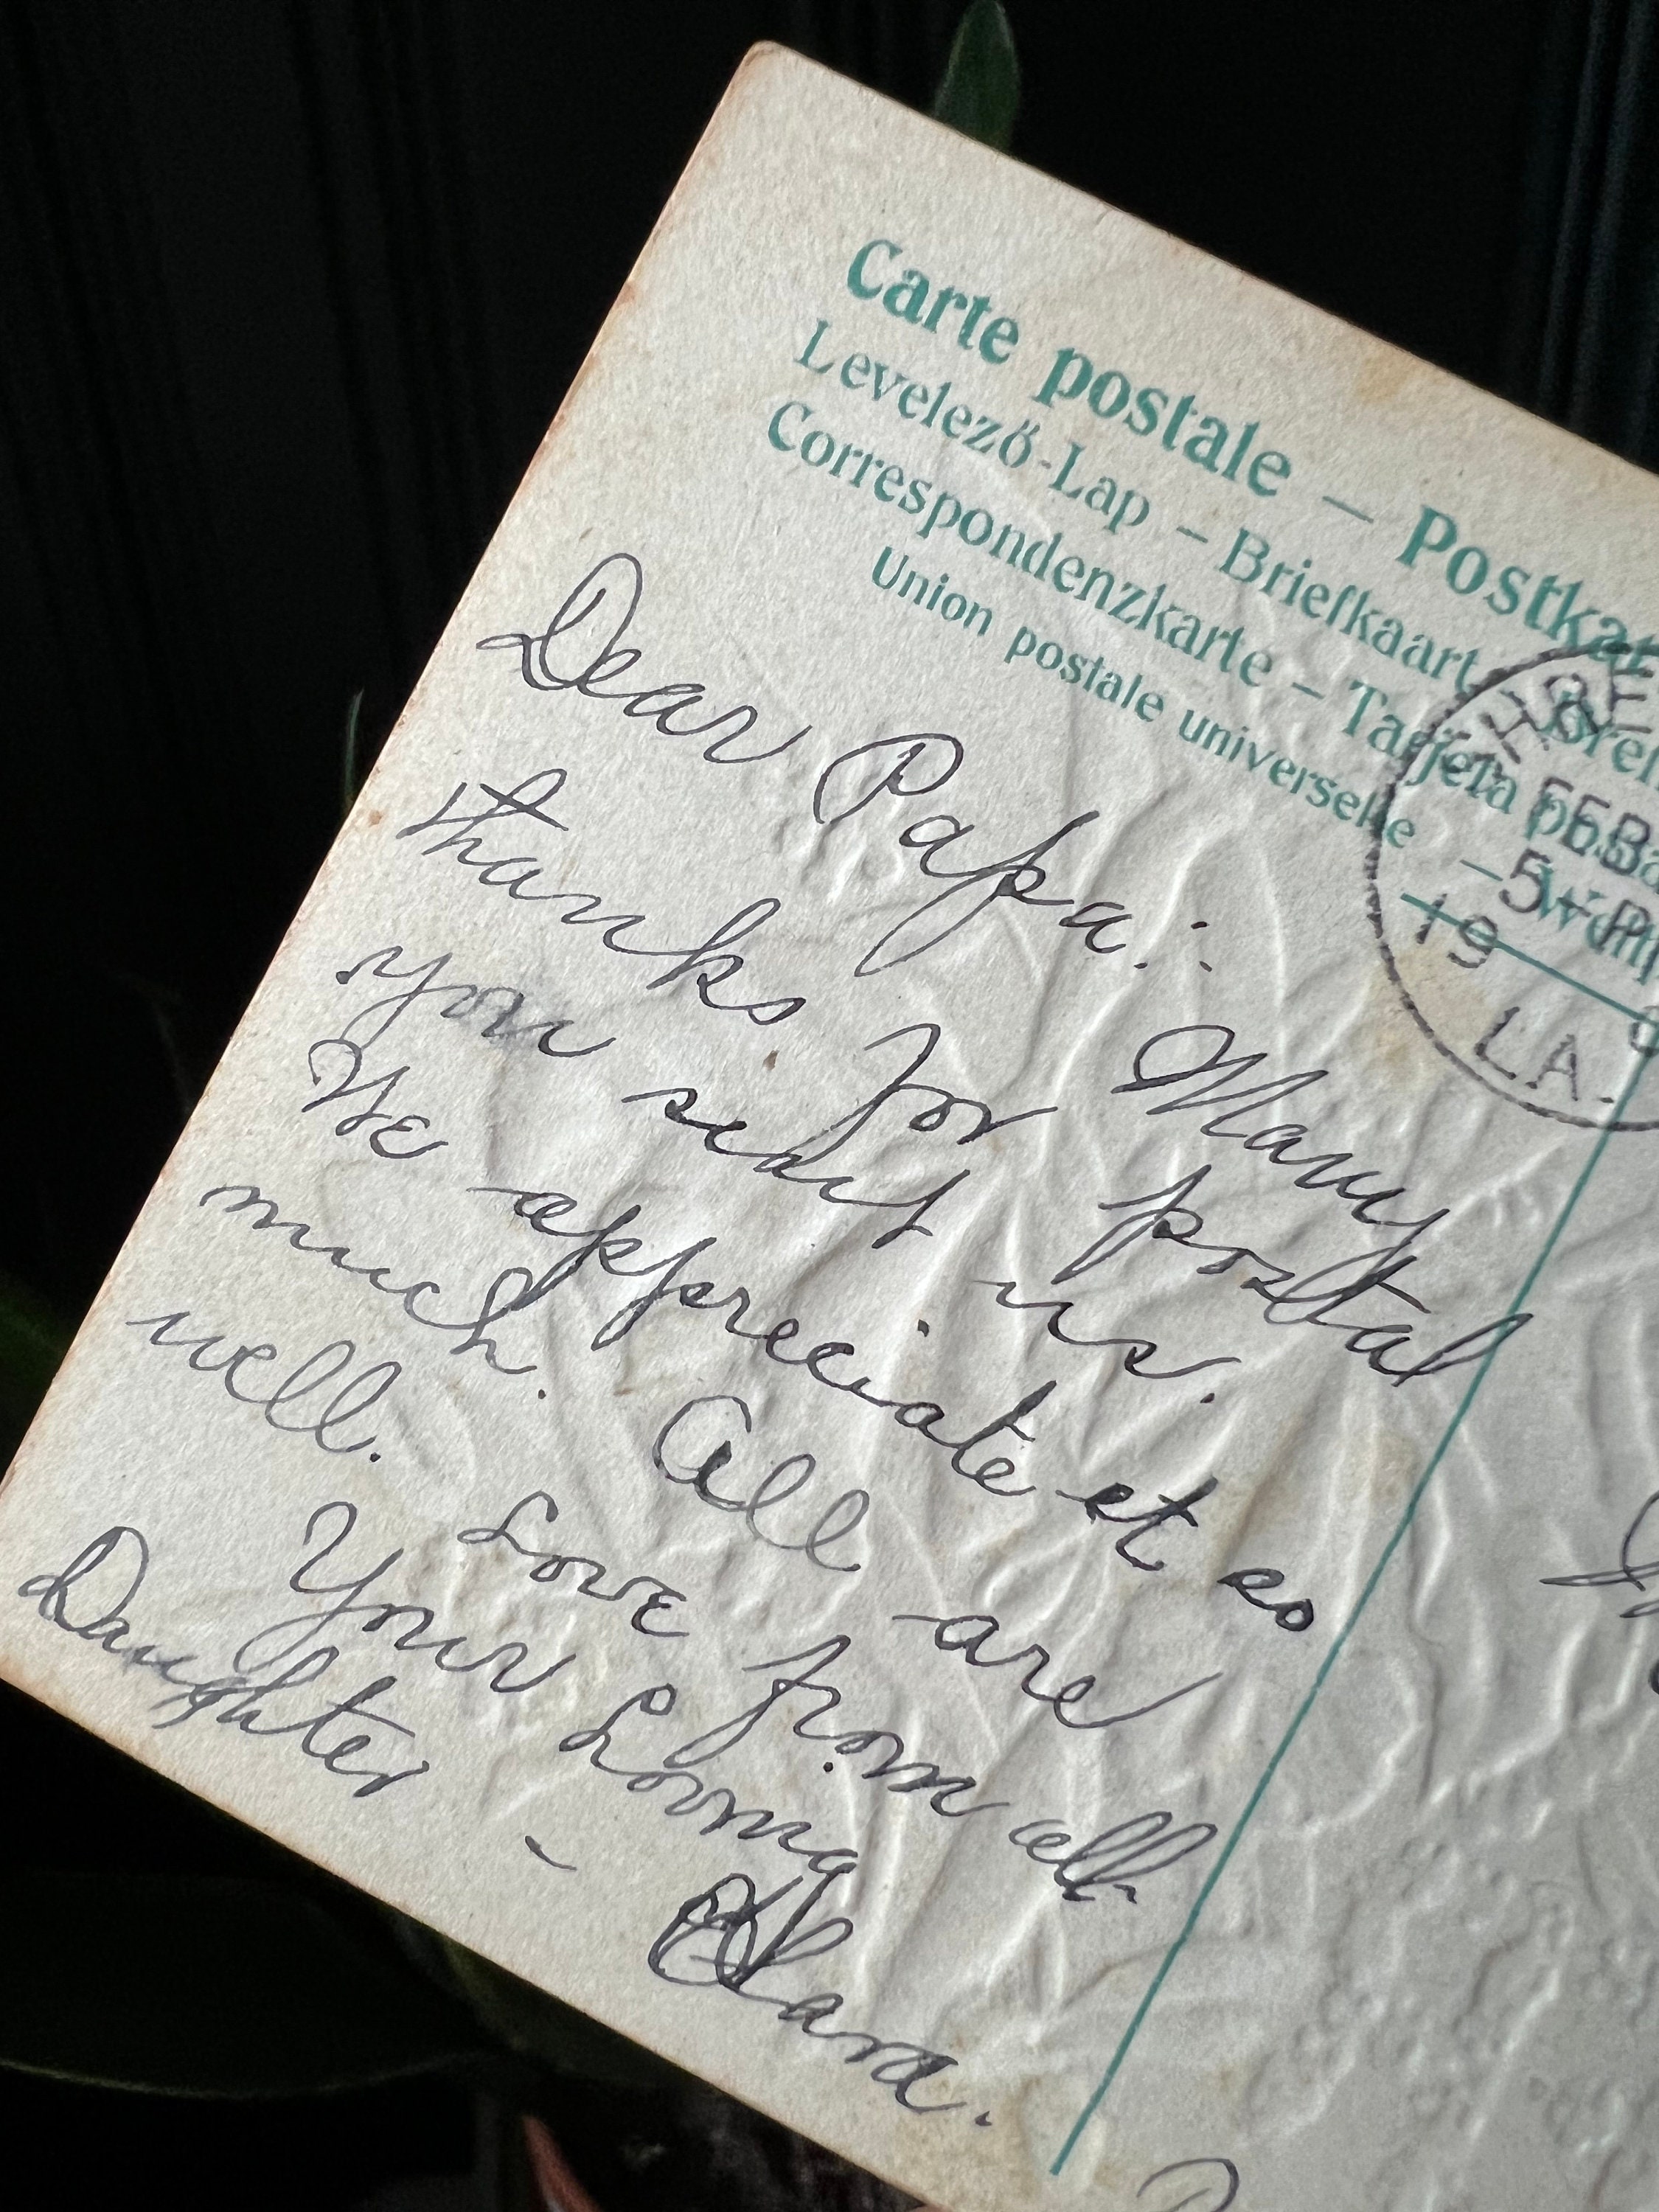 Carte postale — Postkar
Levelező-Lap — Briefkaart — Bref
Correspondenzkarte — Tarjeta posta
Union postale universelle —
SHREVE
FEB
5-P
19
LA.
Dear Papa:
Many
thanks for postal
you sent us.
We appreciate et so
much. All are
well. Love from all-
Your Loving
Daughter -
Clara.